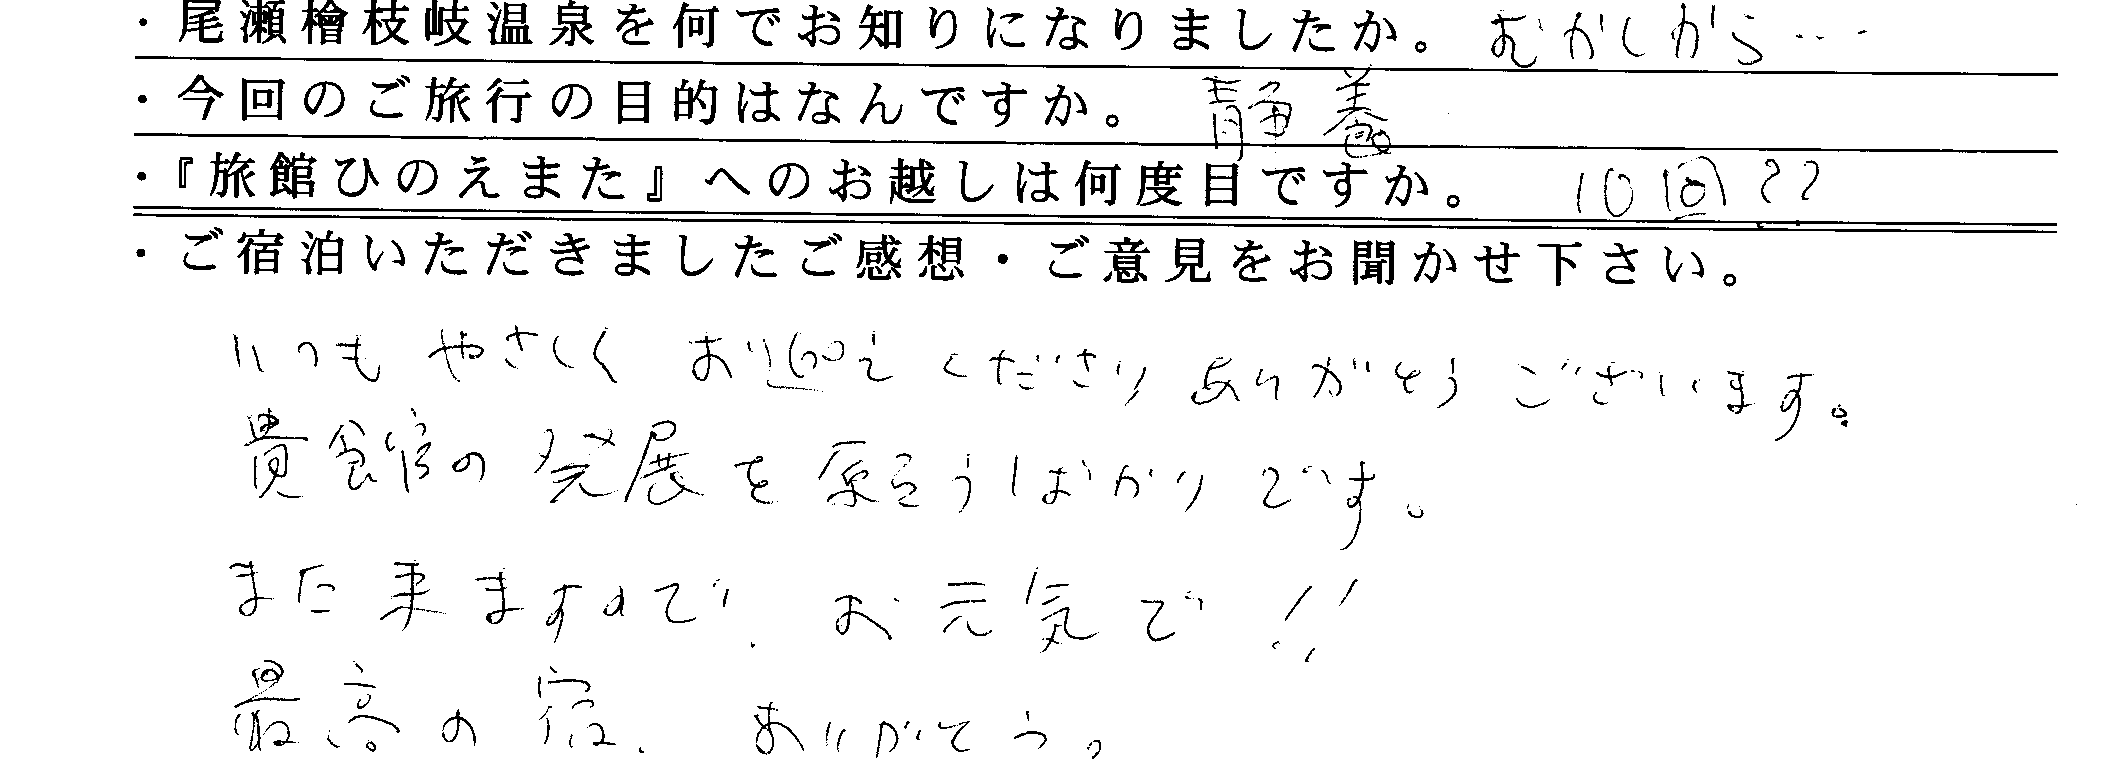 ・尾瀬檜枝岐温泉を何でお知りになりましたか。 むかしから…
・今回のご旅行の目的はなんですか。 静養
・『旅館ひのえまた』へのお越しは何度目ですか。 10回??
・ご宿泊いただきましたご感想・ご意見をお聞かせ下さい。
いつも やさしく お迎え くださり ありがとう ございます。
貴館の 発展を 願うばかりです。
また来ますので、お元気で!!
最高の宿、ありがとう。